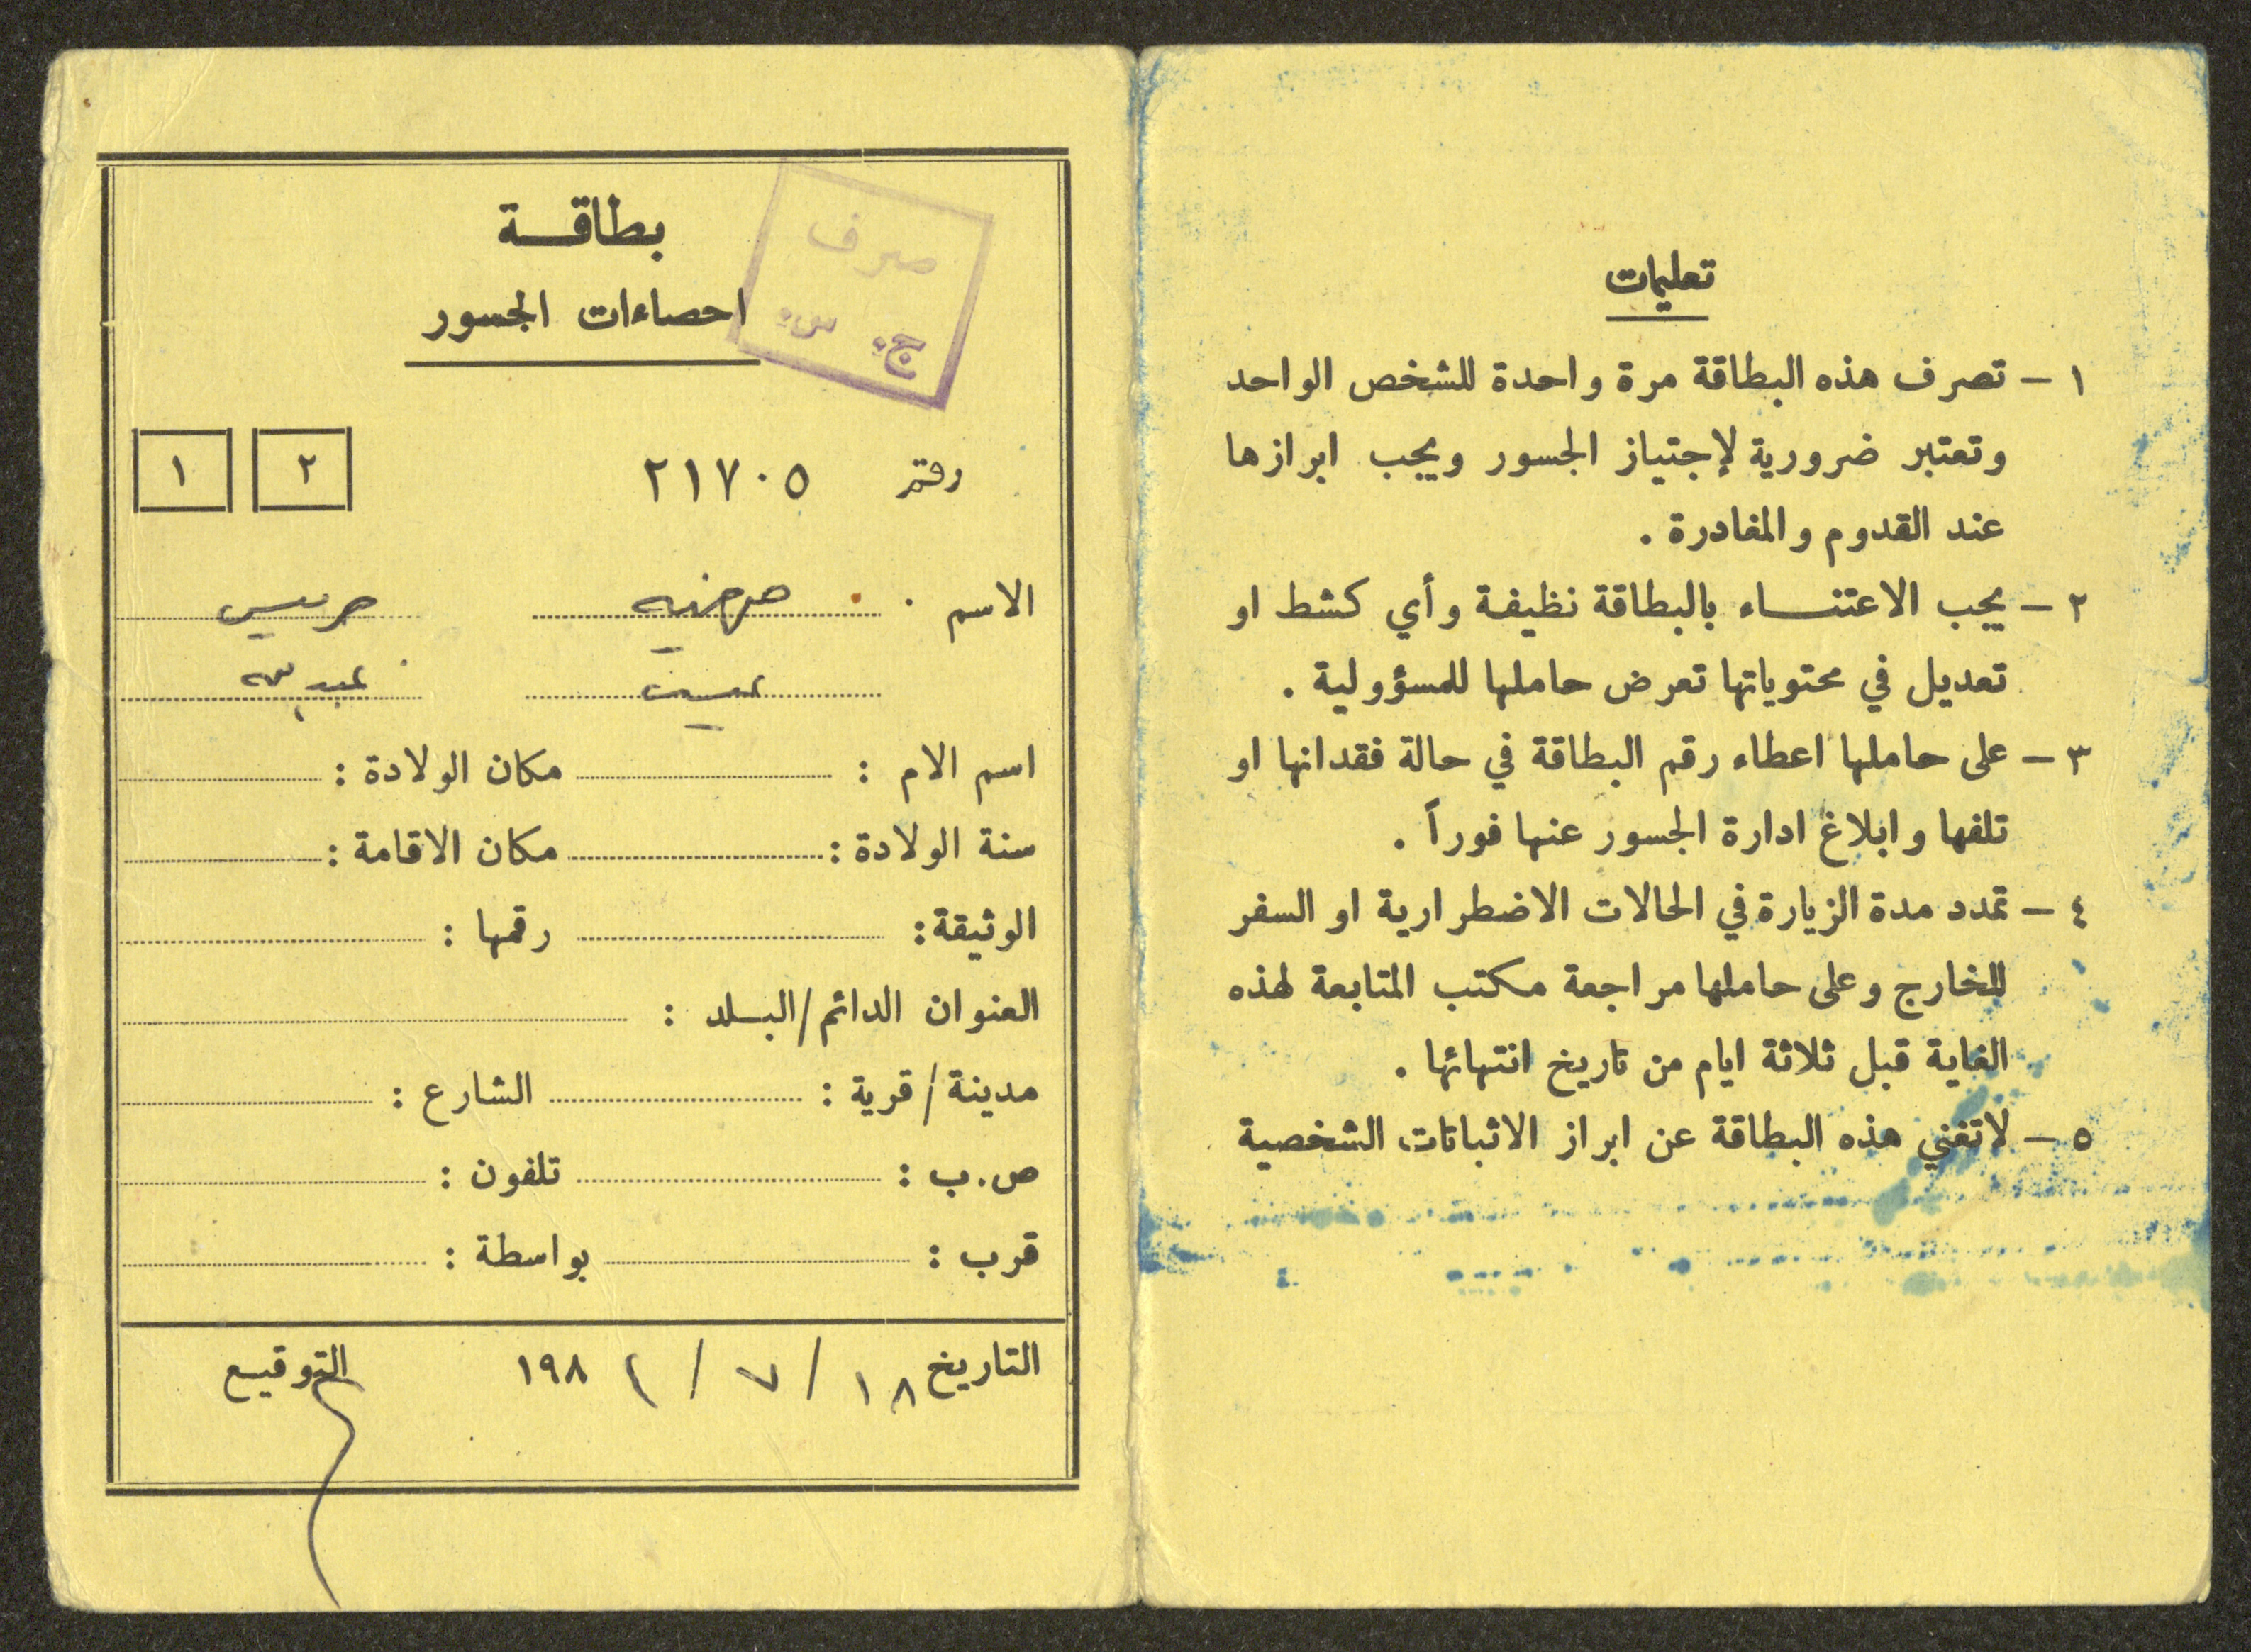 تعليمات
١ - تصرف هذه البطاقة مرة واحدة للشخص الواحد
وتعتبر ضرورية لإجتياز الجسور ويجب ابرازها
عند القدوم والمغادرة .
٢ - يجب الاعتناء بالبطاقة نظيفة وأي كشط او
تعديل في محتوياتها تعرض حاملها للمسؤولية .
٣ - على حاملها اعطاء رقم البطاقة في حالة فقدانها او
تلفها وابلاغ ادارة الجسور عنها فوراً .
٤ - تمدد مدة الزيارة في الحالات الاضطرارية او السفر
للخارج وعلى حاملها مراجعة مكتب المتابعة لهذه
الغاية قبل ثلاثة ايام من تاريخ انتهائها .
٥ - لاتغني هذه البطاقة عن ابراز الاثباتات الشخصية
بطاقة
احصاءات الجسور
صرف
ج. س.
رقم ٢١٧٠٥ ٢ ١
الاسم
اسم الام : مكان الولادة :
سنة الولادة : مكان الاقامة :
الوثيقة : رقمها :
العنوان الدائم/البلد :
مدينة/قرية : الشارع :
ص.ب : تلفون :
قرب : بواسطة :
التاريخ ١٨ / ٧ / ١٩٨ التوقيع